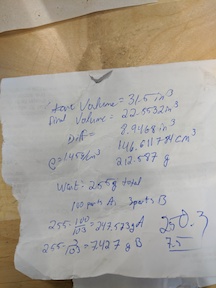 Volume = 31.5 in³
Volume: 22.5532in³
Diff = 8.9468in³
146.611784cm³
ρ=1.45g/cm³ 212.587 g
Want: 255g total
100 parts A: 3 parts B
255·100/103 = 247.573g A
255·3/103 = 7.427 g B
250.3
7.5